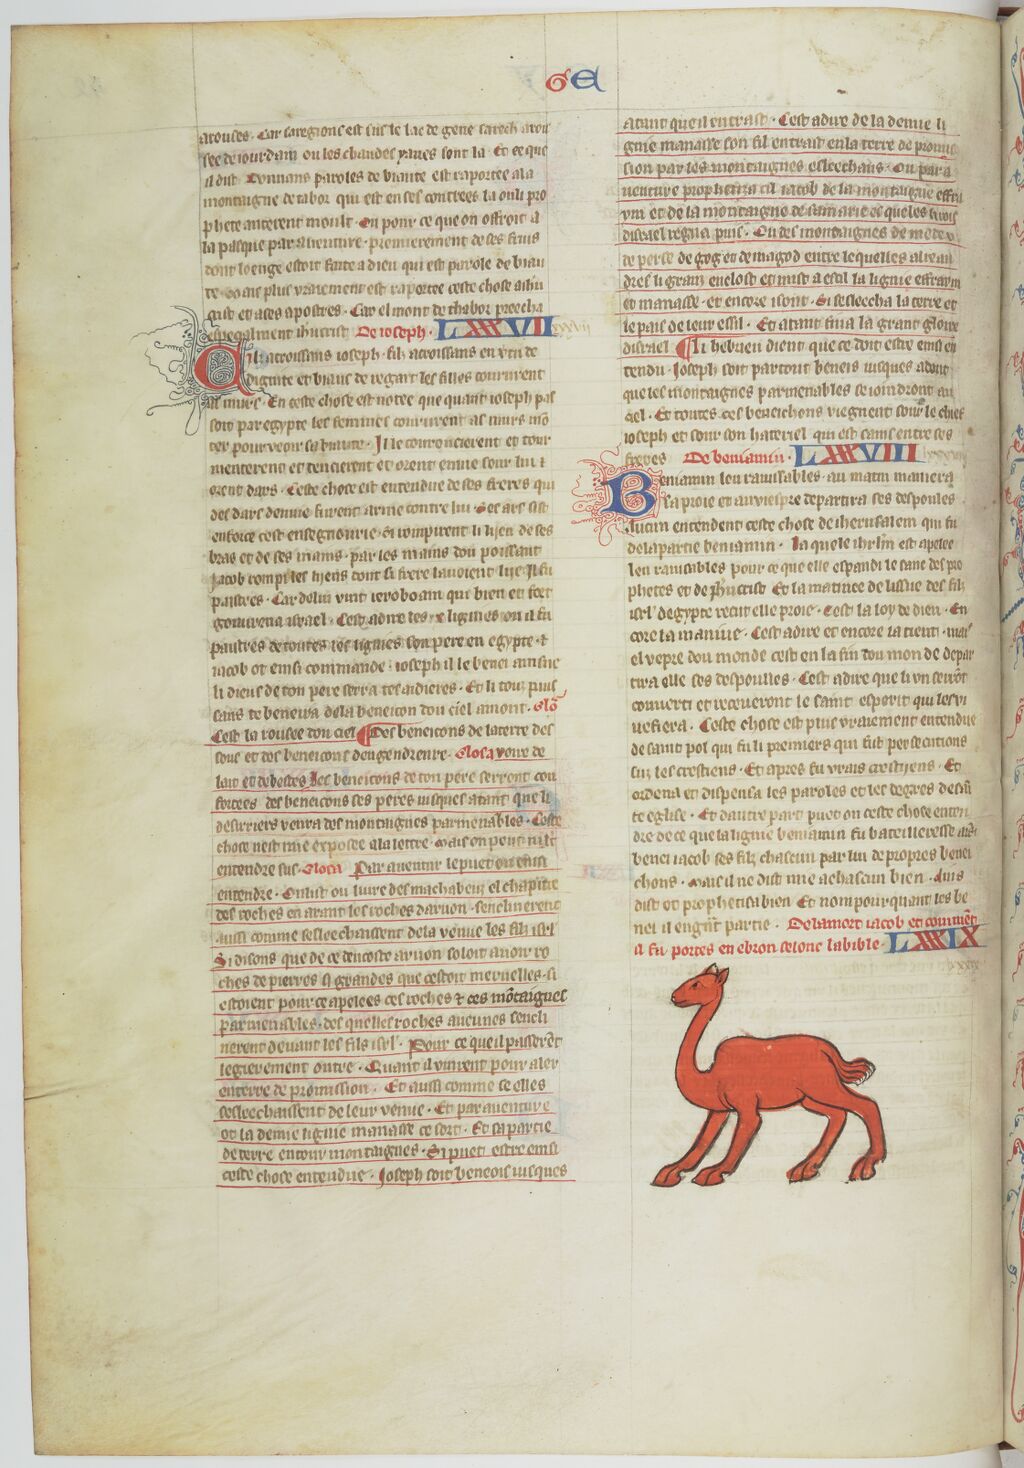 GE
arouses. Car sa regions est sus le lac de gene sarech arou
see de iourdain ou les chaudes yaues sont la. Et ce que
il dist. Donnans paroles de biaute est raportee a la
montaigne de tabor qui est en ses contrees la ou li pro
phete anterent moult. Ou pour ce que on offroit a
la pasque par auenture. premierement de ses fruis
dont loenge estoit faite a dieu qui est parole de biau
te. Mais plus vraiement est raportee ceste chose a ihu
crist et a ses apostres. Car el mont de thabor preecha
especialment ihucrist. De ioseph. LXXXVII
Cil acroissans ioseph. fil acroissans en vertu de
dignite et biaus de regart les filles coururent
as murs. En ceste chose est notee que quant ioseph pas
soit par egypte les femmes coururent as murs mō
ter pour veoir sa biaute. Il le courouchierent et tour
menterent et tencierent et orent enuie sour lui et
orent dars. Ceste chose est entendue de ses freres qui
des dars denuie furent arme contre lui. Ses ars sist
en force cest en segnourie. Et rompirent li lijen de ses
bras et de ses mains. par les mains dou poissant
iacob rompi les lijens dont si frere lauoient lije. Il fu
paistres. Car de lui vint ieroboam qui bien et fort
gouuerna israel. Cest a dire les x lignies ou il fu
paistres de toutes les lignies son pere en egypte. et
iacob ot ensi commande. ioseph il le benei ainsnc
li dieus de ton pere serra tes aidieres. Et li tous puis
sans te beneira de la beneicon dou ciel amont. Glō
Cest la rousee dou ciel Des beneicons de la terre des
sous et des beneicons dengendreure. Glosa voire de
lait et de bestes Les beneicons de ton pere serrent con
fortees des beneicons ses peres iusques a tant que li
desirriers venra des montaignes parmenables. Ceste
chose nest mie exposee a la lettre. Mais on peut mlt
entendre sus. Glosa Par auenture le puet on ensi
entendre. On list ou liure des machabeus el chapitre
des roches en arant les roches darnon. senclinerent
aussi comme sesleechaissent de la venue les fils israel
Si disons que de ce deuoste arnon soloit auoir ro
ches de pierres si grandes que cestoit merueilles. si
estoient pour ce apelees ces roches et ces mōtaignes
parmenables. des queles roches aucunes sencli
nerent deuant les fils isrl. Pour ce que il passerēt
legierement outre. Quant il vinrent pour aler
en terre de promission. Et aussi comme se elles
sesleechaissent de leur venue. Et par auenture
ot la demie lignie manasse ce sort. Et sa partie
de terre entour montaignes. Si puet estre ensi
ceste chose entendue. Ioseph soit beneois iusques
atant que il entrast. Cest a dire de la demie li
gnie manasse son fil entrast en la terre de promis
sion par les montaignes esleechans. Ou par a
uenture prophetiza cil iacob de la montaigne effra
ym et de la montaigne de samarie es queles li rois
disrael regna puis. Ou des montaignes de mede v
de perse de gog et de magog entre lequelles alixan
dres li grans enclost et mist a essil la lignie effraym
et manasse. et encore i sont. Si sesleecha la terre et
le pais de leur essil. Et atant fina la grant gloire
disrael Li hebrieu dient que ce doit estre ensi en
tendu. Ioseph soit partout beneis iusques adont
que les montaignes parmenables se ioindront au
ciel. Et toutes ces beneichons viegnent sour le chief
ioseph et sour son hateriel qui est sains entre ses
freres De beniamin. LXXXVIII
Beniamin leu rauisables. au matin mangera
la proie et au viespre departira ses despoules
Aucun entendent ceste chose de iherusalem qui fu
de la partie beniamin. la quele ihrlm est apelee
leu rauisables pour ce que elle espandi le sanc des pro
phetes et de ihucrist Et la matinee de lissue des fils
isrl degypte recut elle proie. Cest la loy de dieu. En
core la maniue. Cest a dire et encore la tient. mais
el vepre dou monde cest en la fin dou monde depar
tira elle ses despoulles. Cest a dire que li vn serōt
conuerti et receueront le saint esperit qui les vi
uefiera. Ceste chose est plus vraiement entendue
de saint pol qui fu li premiers qui fist persecutions
sus les crestiens. Et apres fu vrais crestijens. Et
ordena et dispensa les paroles et les degres de sain
te eglise. Et dautre part puet on ceste chose enten
dre de ce que la lignie beniamin fu bateilleresse
benei iacob ses filz chascun par lui de propres benei
chons. Mais il ne dist mie a chascun bien. Ains
dist et prophetisa bien Et nompourquant les be
nei il en grāt partie. De la mort iacob et commēt
il fu portes en ebron selonc la bible. LXXXIX